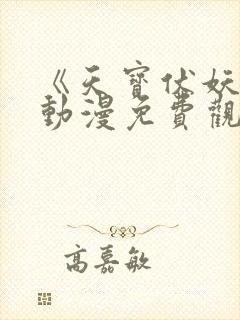 《天寶伏妖
動漫免費觀
高嘉敏